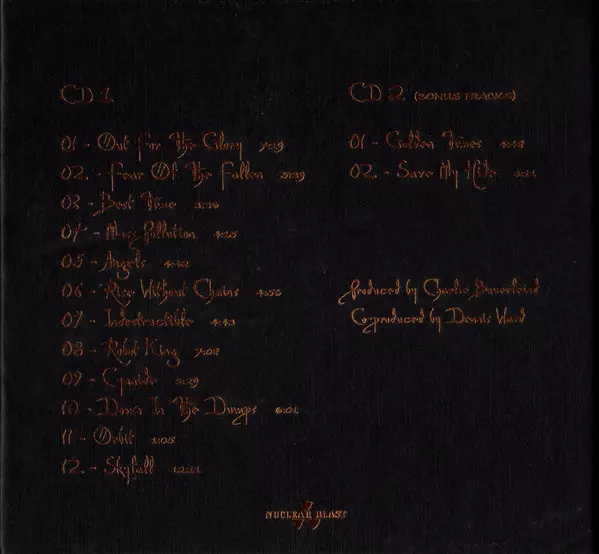 CD 1
01 - Out For The Glory 7:19
02. - Fear Of The Fallen
03 - Best Time
04 - Mass Pollution
05 - Angels 4:42
06 - Rise Without Chains 4:56
07 - Indestructible 4:43
08 - Robot King
09 - Cyanide 3:29
10 - Down In The Dumps 6:01
11 - Orbit 1:05
12. - Skyfall 12:11
CD 2 (BONUS TRACKS)
01 - Golden Times
02. - Save My Hide
Produced by Charlie Bauerfeind
Co-produced by Dennis Ward
NUCLEAR BLAST